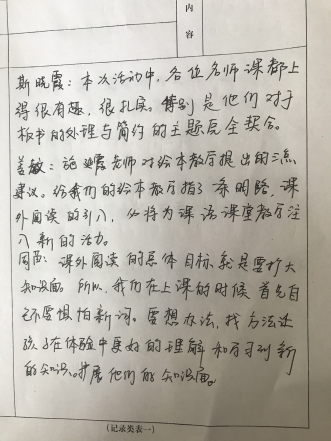 内
容
斯晓霞：本次活动中，各位名师课都上
得很有趣，很扎实。特别是他们对于
板书的处理与简约的主题完全契合。
姜敏：施 老师对绘本教学提出的三点
建议。给我们的绘本教学指了条明路，课
外阅读的引入，必将为课语课堂教学注
入新的活力。
周芦：课外阅读的总体目标，就是要扩大
知识面。所以，我们在上课的时候首先自
己不要惧怕新词。要想办法，找方法让
孩子在体验中更好的理解和学习到新
的知识。扩展他们的知识面。
(记录类表一)